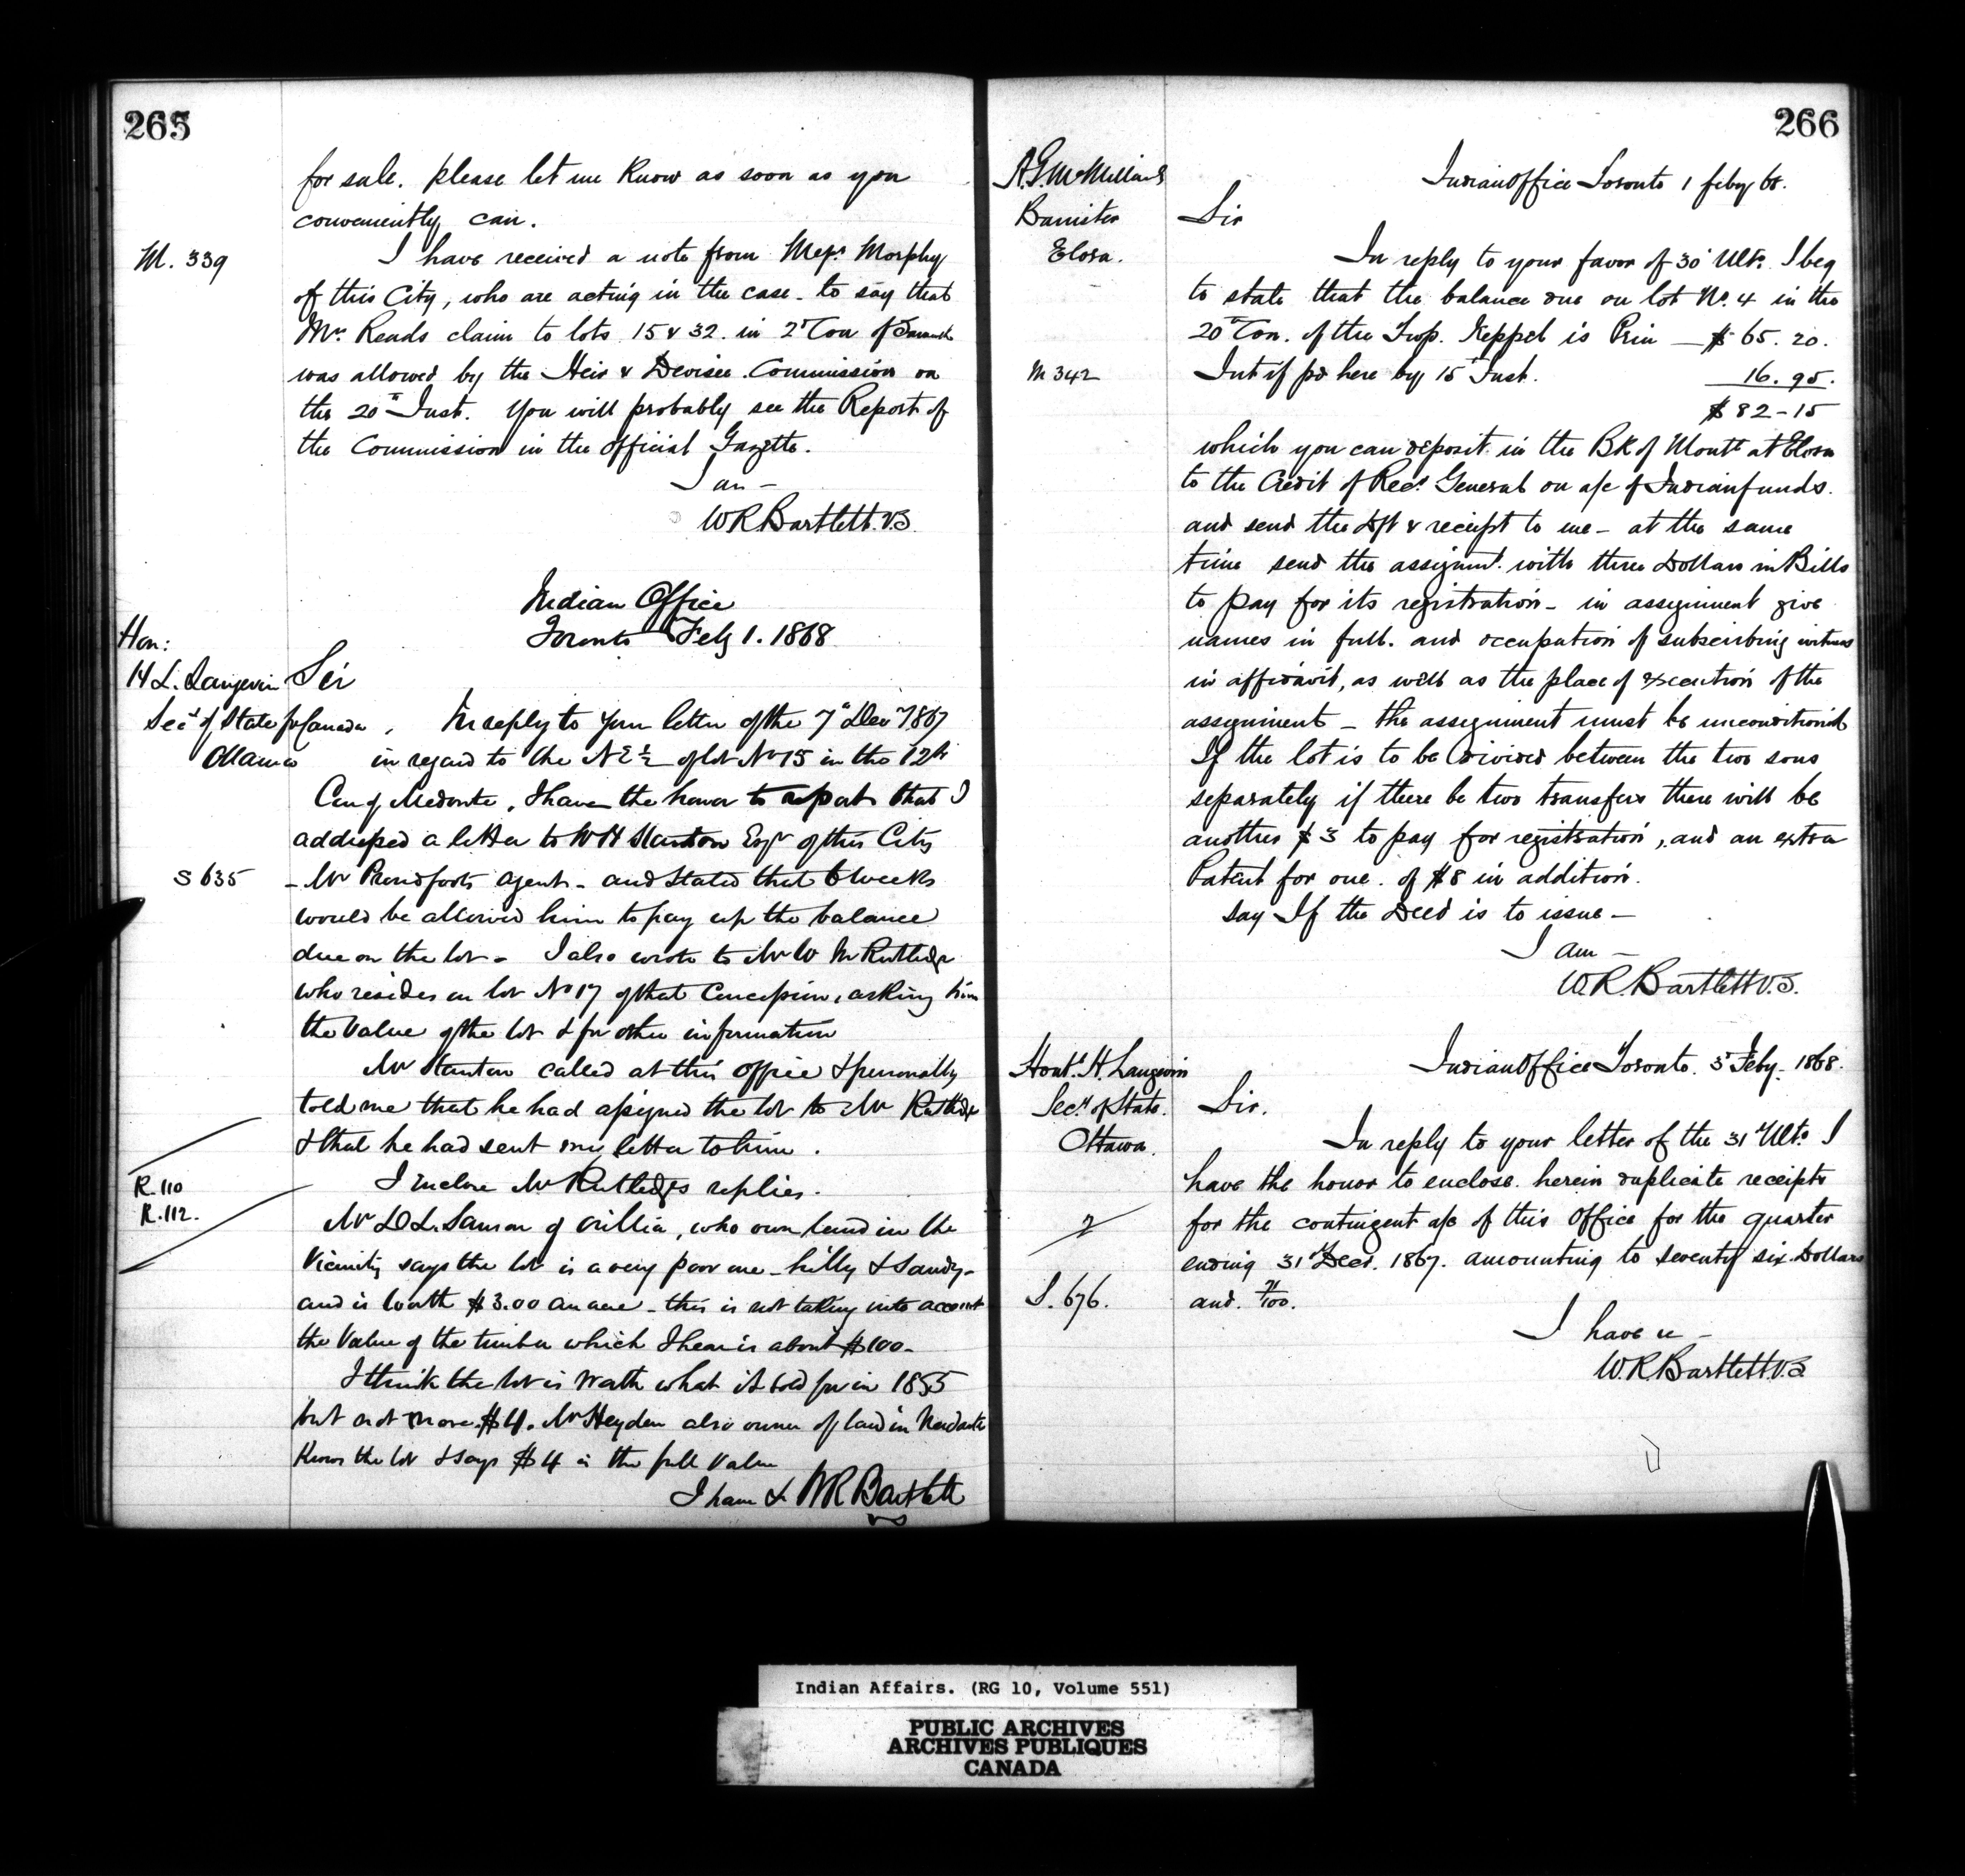 265
for sale. please let me Know as soon as you
conveniently can.
M. 339
I have received a note from Messrs Morphy
of this City, who are acting in the case to say that
Mr. Reads claim to lots 15 & 32. in 2d Con of
was allowed by the Heir & Devisee Commission on
the 20th Inst. You will probably see the Report of
the Commission in the official Gazette.
I am —
WR Bartlett. V.S.
Indian Office
Toronto Feby 1. 1868
Hon:
H L. Langevin
Secy of State for Canada
Ottawa
Sir
In reply to your letter of the 7th Decr 1867
in regard to the N E ½ of lot No 15 in the 12th
Con of Medonte, I have the honor to report that I
addressed a letter to W H Stanton Esqr of this City
S 635
- Mr Proudfoots agent - and stated that 6 weeks
would be allowed him to pay up the balance
due on the lot - I also wrote to Mr W M Rutledge
who resides on lot No 17 of that Concession, asking him
the value of the lot & for other information
Mr Stanton called at this office & personally
told me that he had assigned the lot to Mr Rutledge
& that he had sent my letter to him.
R. 110
R. 112.
I inclose Mr Rutledges replies.
Mr Sanson of Orillia, who own land in the
Vicinity says the lot is a very poor one - hilly & sandy -
and is worth $3.00 an acre - this is not taking into account
the value of the timber which I hear is about $100 -
I think the lot is worth what it sold for in 1855
but not more $4. Mr Heyden also owner of land in
Knows the lot & says $4 is the full value
I have & WR Bartlett
VS
266
A.G. McMillan
Barrister
Elora.
Indian Office Toronto 1 feby 68.
Sir
In reply to your favor of 30 Ulto. I beg
to state that the balance due on lot No. 4 in the
20th Con. of the Twp. Keppel is Prin — $65.20.
M 342
Int if pd here by 15 Inst. 16.95.
$82-15
which you can deposit in the Bk of Montl at Elora
to the Credit of Recr General on a/c of Indian funds.
and send the dft & receipt to me - at the same
time send the assignmt. with three Dollars in Bills
to pay for its registration - in assignment give
names in full. and occupation of subscribing witness
in affidavit, as well as the place of execution of the
assignment - the assignment must be unconditional
If the lot is to be divided between the two sons
separately if there be two transfers there will be
another $3 to pay for registration, and an extra
Patent for one. of $8 in addition.
Say If the Deed is to issue —
I am —
W.R. Bartlett V.S.
Honl. H. Langevin
Secy of State.
Ottawa.
Indian Office Toronto. 3d Feby. 1868.
Sir.
In reply to your letter of the 31 Ulto I
have the honor to enclose herein duplicate receipts
2
for the contingent a/c of this Office for the quarter
ending 31st Decr. 1867. amounting to seventy six Dollars
S. 676.
and /100.
I have &c —
W.R. Bartlett V.S
Indian Affairs. (RG 10, Volume 551)
PUBLIC ARCHIVES
ARCHIVES PUBLIQUES
CANADA